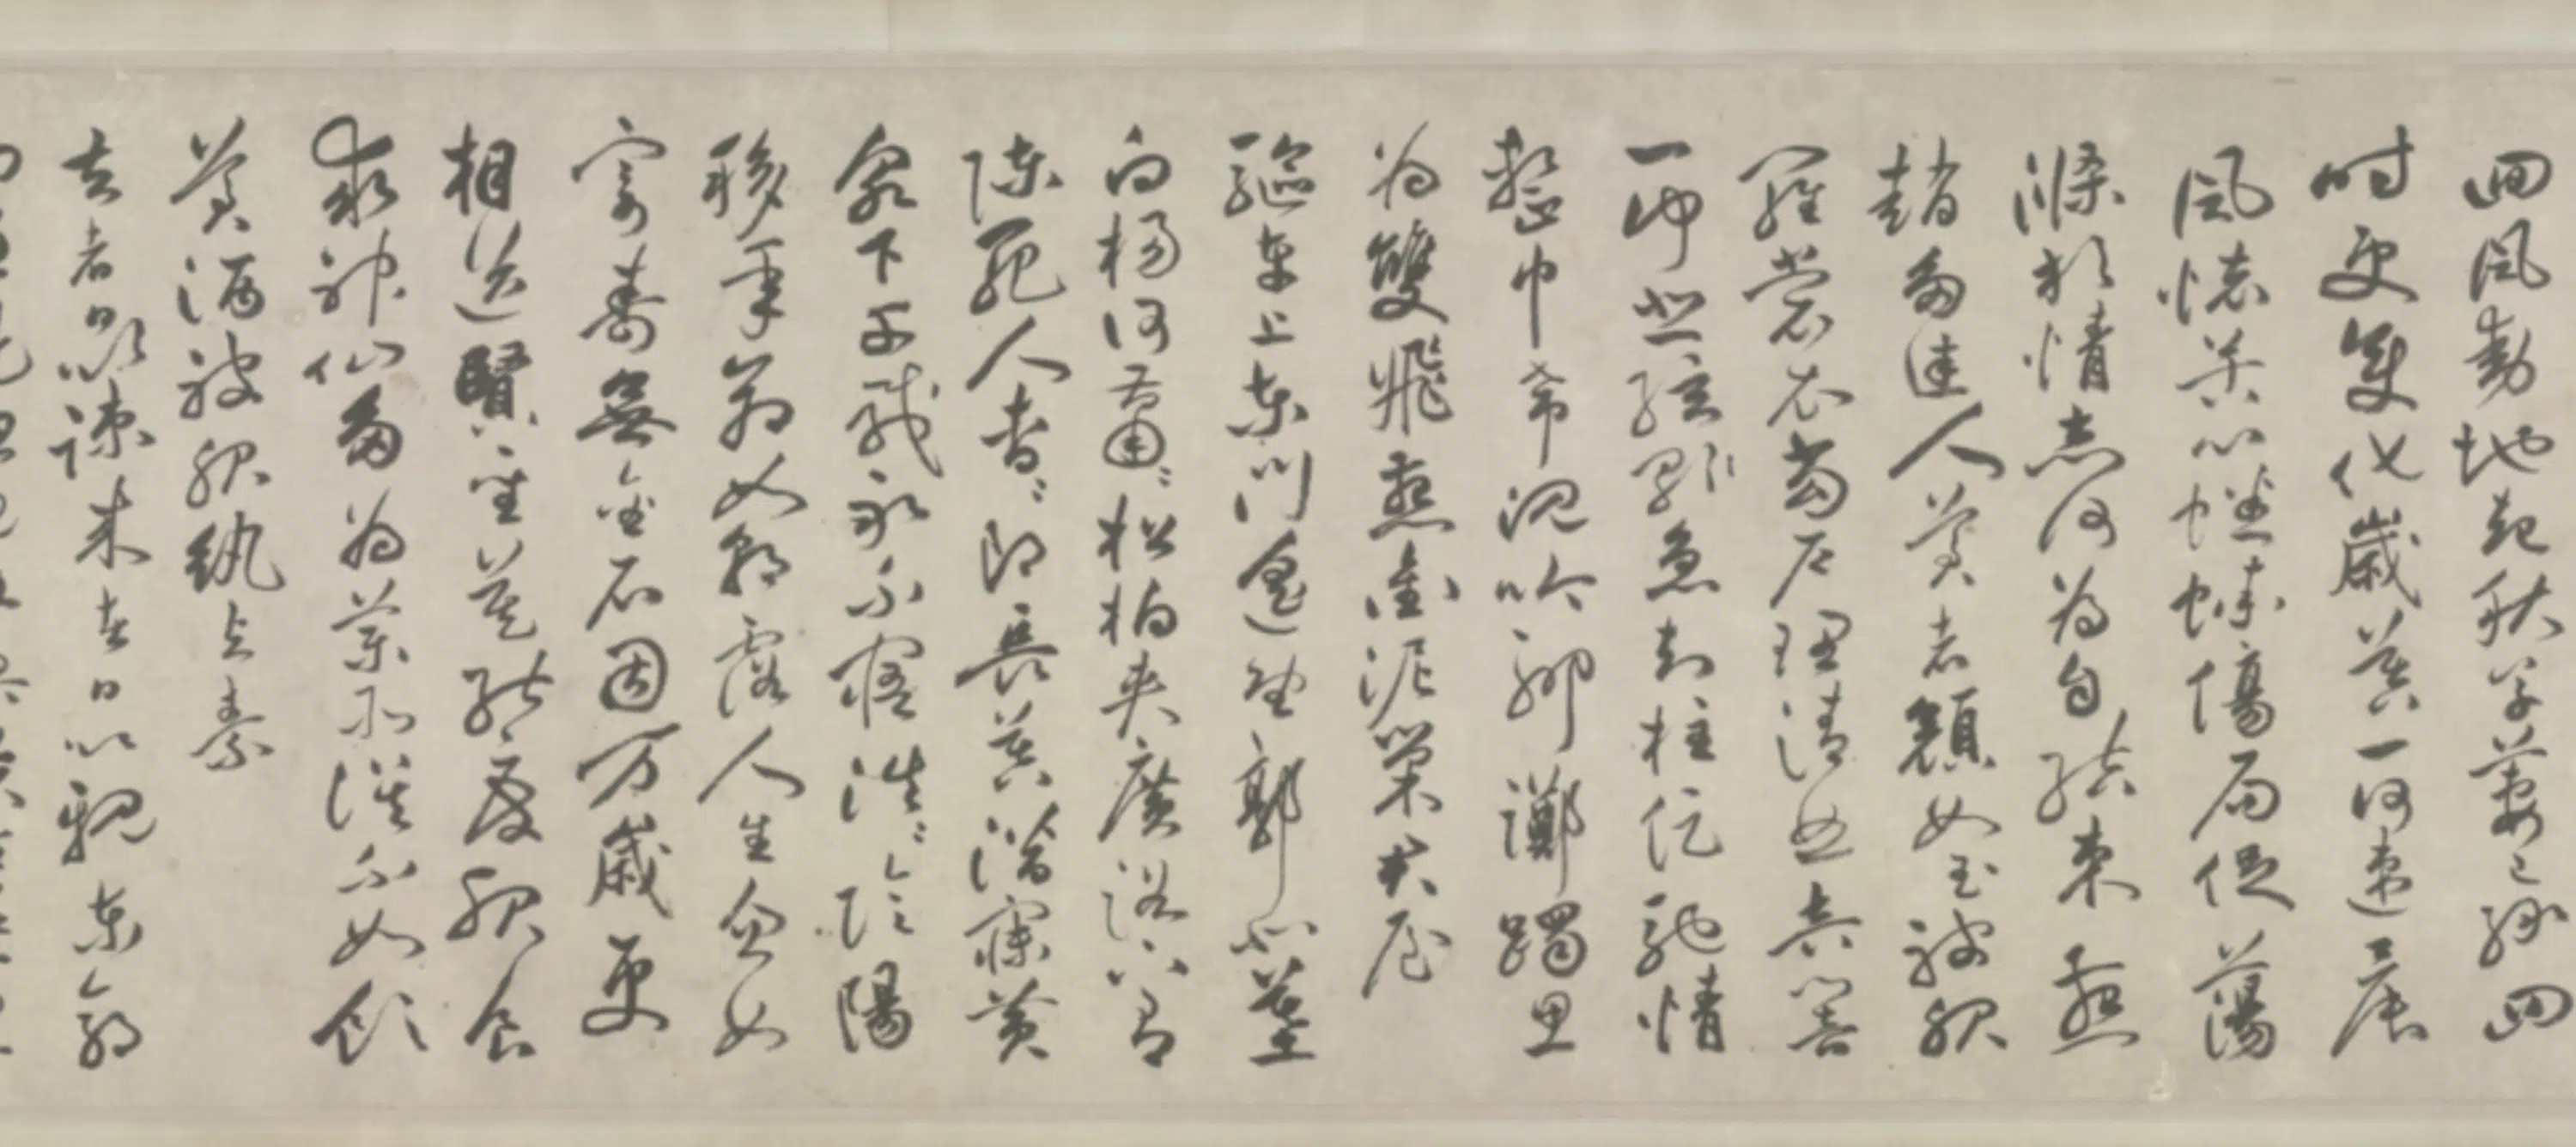 回風動地起秋草萋已綠四
時更變化歲暮一何速晨
風懷苦心蟋蟀傷局促蕩
滌放情志何為自結束燕
趙多佳人美者顏如玉被服
羅裳衣當戶理清曲音響
一何悲絃急知柱促馳情
整巾帶沉吟聊躑躅思
為雙飛燕銜泥巢君屋
驅車上東門遙望郭北墓
白楊何蕭〻松柏夾廣路下有
陳死人杳〻即長暮潛寐黃
泉下千載永不寤浩〻陰陽
移年命如朝露人生忽如
寄壽無金石固万歲更
相送賢聖莫能度服食
求神仙多為藥所誤不如飲
美酒被服紈與素
去者日以疎来者日以親出郭